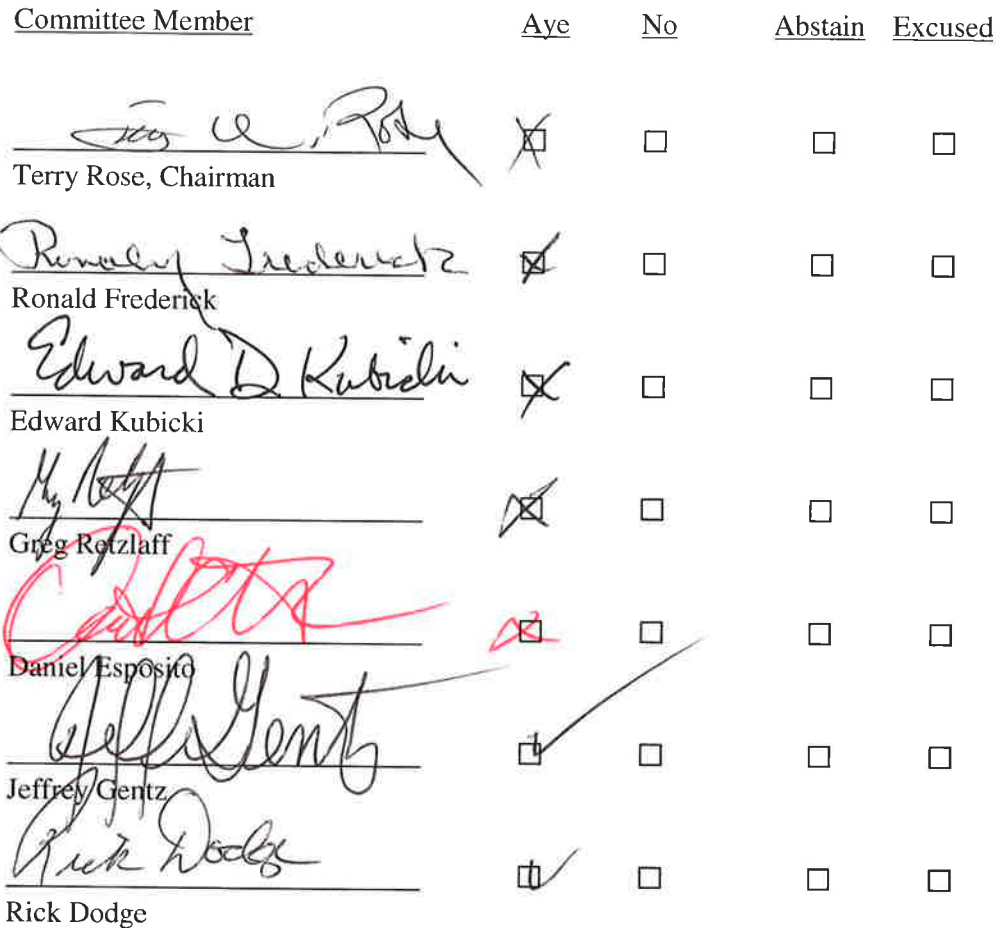 Committee Member Aye No Abstain Excused
Terry Rose, Chairman
Ronald Frederick
Ronald Frederick
Edward D Kubicki
Edward Kubicki
Greg Retzlaff
Daniel Esposito
Jeff Gentz
Jeffrey Gentz
Rick Dodge
Rick Dodge